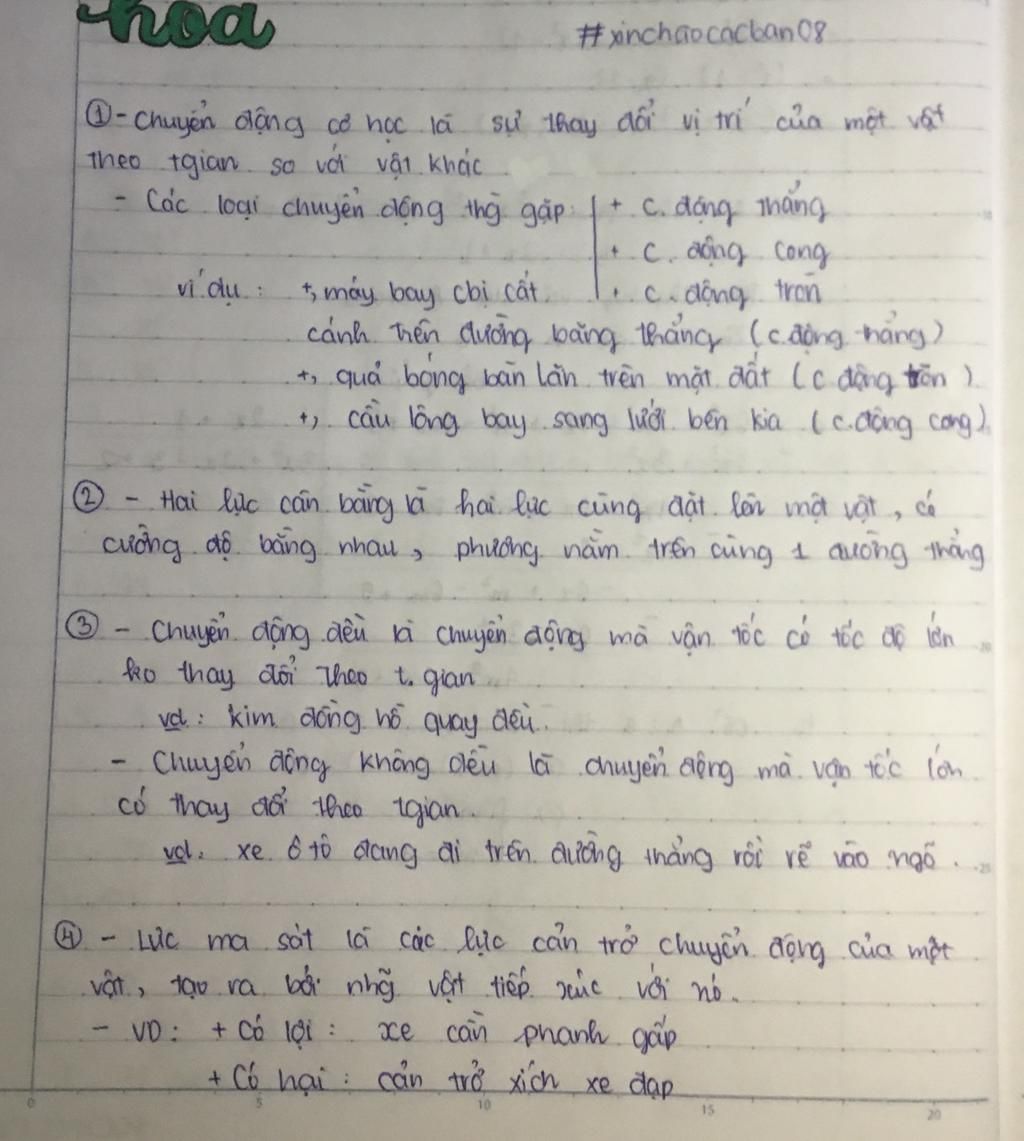 hoa
#xinchaocacban08
① - Chuyển động cơ học là sự thay đổi vị trí của một vật
theo tgian so với vật khác
- Các loại chuyển động thg gặp: + c. động thẳng
+ c. động cong
ví dụ: +, máy bay cbị cất + c. động tròn
cánh trên đường băng thẳng (c.động thẳng)
+, quả bóng bàn lăn trên mặt đất (c động tròn).
+, cầu lông bay sang lưới bên kia (c.động cong)
② - Hai lực cân bằng là hai lực cùng đặt lên một vật, có
cường độ bằng nhau, phương nằm trên cùng 1 đường thẳng
③ - Chuyển động đều là chuyển động mà vận tốc có tốc độ lớn
ko thay đổi theo t. gian
vd: kim đồng hồ quay đều.
- Chuyển động không đều là chuyển động mà vận tốc lớn
có thay đổi theo tgian.
vd: xe ô tô đang đi trên đường thẳng rồi rẽ vào ngõ.
④ - Lực ma sát là các lực cản trở chuyển động của một
vật, tạo ra bởi nhg vật tiếp xúc với nó.
- VD: + Có lợi: xe cần phanh gấp
+ Có hại: cản trở xích xe đạp
0 5 10 15 20